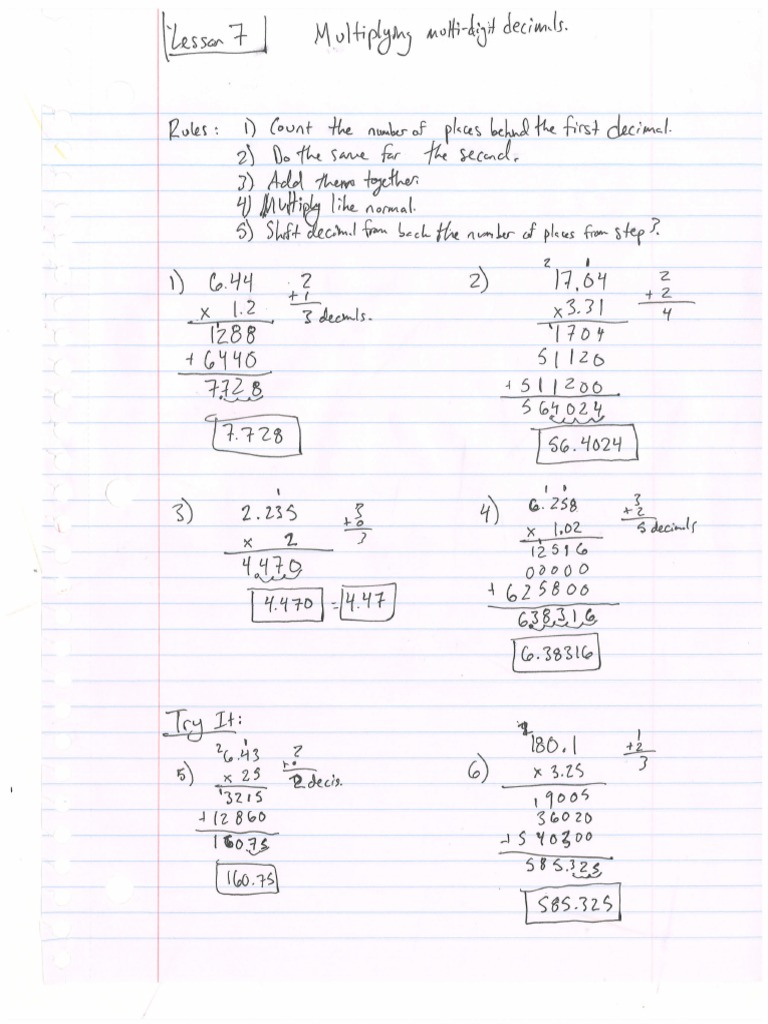 Lesson 7
Multiplying multi-digit decimals.
Rules: 1) Count the number of places behind the first decimal.
2) Do the same for the second.
3) Add them together.
4) Multiply like normal.
5) Shift decimal from back the number of places from step 3.
1) 6.44 2
x 1.2 +1
1288 3 decimals.
+6440
7728
7.728
2) 17.04 2
x 3.31 +2
1704 4
51120
+511200
564024
56.4024
3) 2.235 3
x 2 +0
4.470 3
4.470 = 4.47
4) 6.258 3
x 1.02 +2
12516 5 decimals
00000
+625800
638316
6.38316
Try It:
5) 6.43 2
x 25 +0
3215 2 decis.
+12860
16075
160.75
6) 180.1 1
x 3.25 +2
9005 3
36020
+540300
585.325
585.325